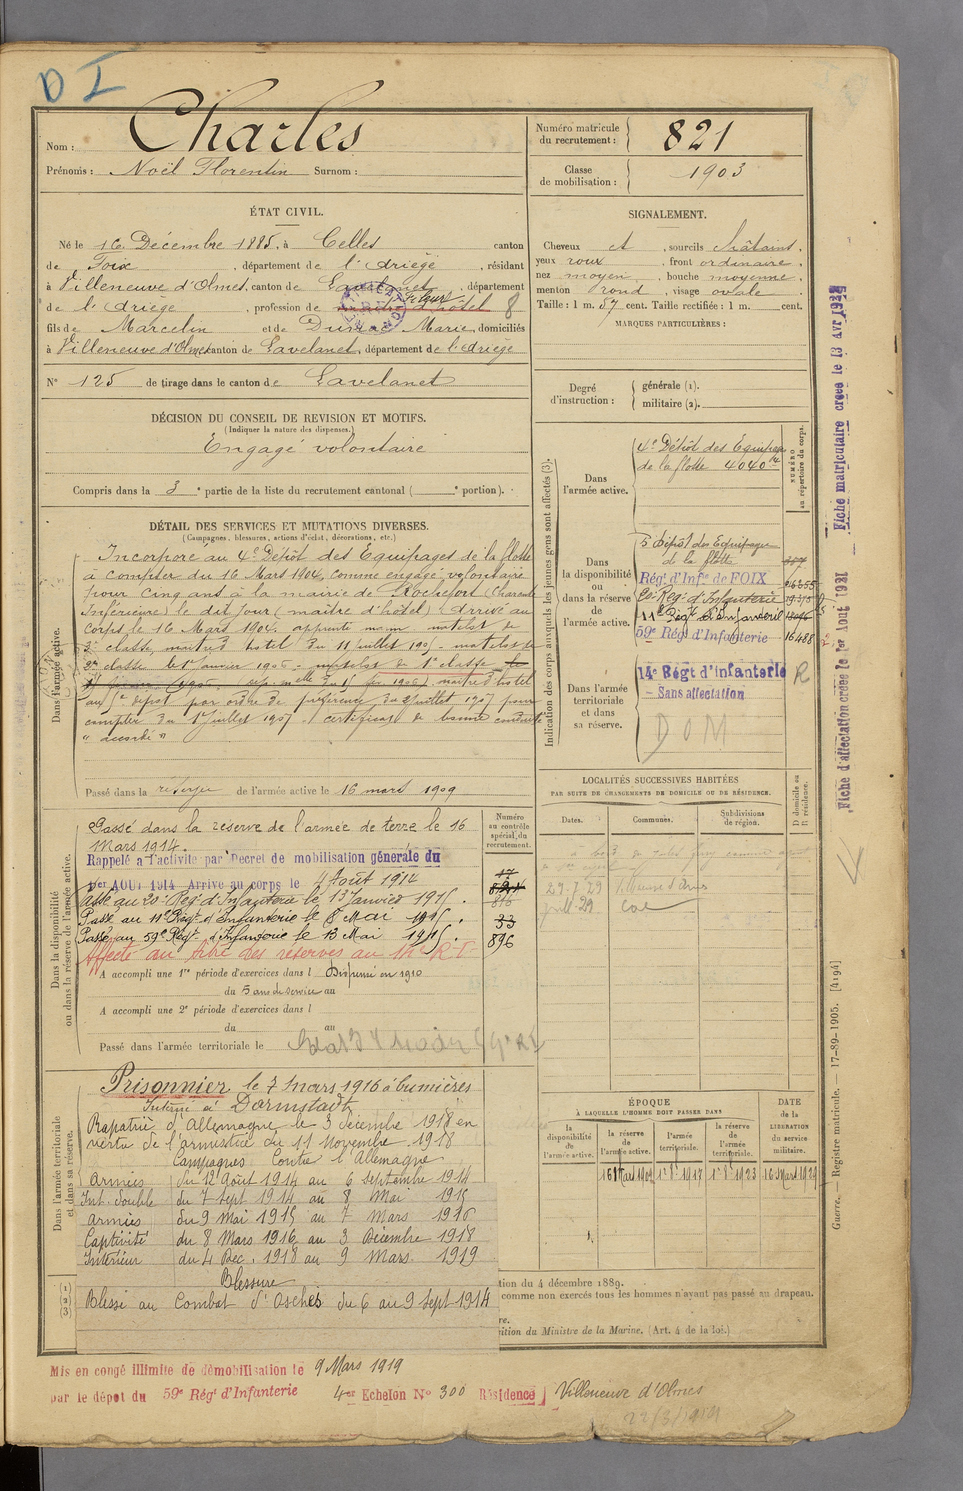 D I
Nom : Charles
Prénoms : Noël Florentin Surnom :
Numéro matricule du recrutement : 821
Classe de mobilisation : 1903
ÉTAT CIVIL.
Né le 16 Décembre 1885, à Celles canton
de Foix, département de l'Ariège, résidant
à Villeneuve d'Olmes, canton de Lavelanet, département
de l'Ariège, profession de maître d'hôtel 8
fils de Marcelin et de Dumac Marie, domiciliés
à Villeneuve d'Olmes canton de Lavelanet, département de l'Ariège
N° 125 de tirage dans le canton de Lavelanet
SIGNALEMENT.
Cheveux ct, sourcils châtains,
yeux roux, front ordinaire,
nez moyen, bouche moyenne,
menton rond, visage ovale
Taille : 1 m. 57 cent. Taille rectifiée : 1 m. cent.
MARQUES PARTICULIÈRES :
Degré d'instruction : générale (1).
militaire (2).
DÉCISION DU CONSEIL DE REVISION ET MOTIFS.
(Indiquer la nature des dispenses.)
Engagé volontaire
Compris dans la 3e partie de la liste du recrutement cantonal ( e portion).
DÉTAIL DES SERVICES ET MUTATIONS DIVERSES.
(Campagnes, blessures, actions d'éclat, décorations, etc.)
Dans l'armée active.
Incorporé au 4e Dépôt des Equipages de la flotte
à compter du 16 Mars 1904, comme engagé volontaire
pour cinq ans à la mairie de Rochefort (Charente
Inférieure) le dit jour (maître d'hôtel) Arrivé au
corps le 16 Mars 1904. apprenti marin matelot de
3e classe, maître d'hotel du 11 juillet 1905 - matelot de
2e classe le 1er janvier 1906 - matelot de 1e classe
maître d'hotel
au 5e dépot par ordre de préférence du 2 juillet 1907 pour
compter du 1er juillet 1907. certificat de bonne conduite
"accordé"
Passé dans la réserve de l'armée active le 16 mars 1909
Dans la disponibilité ou dans la réserve de l'armée active.
Numéro au contrôle spécial du recrutement.
Passé dans la réserve de l'armée de terre le 16
Mars 1914.
Rappelé à l'activité par Décret de mobilisation générale du
1er AOUT 1914 Arrivé au corps le 4 Août 1914
Passé au 20e Régt d'Infanterie le 13 Janvier 1915. 816
Passé au 11e Régt d'Infanterie le 8 Mai 1915. 33
Passé au 59e Régt d'Infanterie le 13 Mai 1915. 896
Affecté au titre des réserves au 14e R.I.
A accompli une 1re période d'exercices dans l Dispensé en 1910
du 5 ans de service au
A accompli une 2e période d'exercices dans l
du au
Passé dans l'armée territoriale le
Dans l'armée territoriale et dans sa réserve.
Prisonnier le 7 mars 1916 à Cumières
Interné à Darmstadt
Rapatrié d'Allemagne le 3 décembre 1918 en
vertu de l'armistice du 11 Novembre 1918
Campagnes Contre l'Allemagne
Armées du 12 Août 1914 au 6 septembre 1914
Int. double du 7 Sept 1914 au 8 Mai 1915
Armées du 9 Mai 1915 au 7 Mars 1916
Captivité du 8 Mars 1916 au 3 Décembre 1918
Intérieur du 4 Dec. 1918 au 9 Mars. 1919
Blessure
Blessé au Combat d'Osches du 6 au 9 Sept 1914
Indication des corps auxquels les jeunes gens sont affectés (3).
NUMÉRO au répertoire du corps.
Dans l'armée active.
4e Dépôt des Equipages
de la flotte 4040
Dans la disponibilité ou dans la réserve de l'armée active.
5e Dépôt des Equipages
de la flotte
Rég. d'Infie de FOIX
20e Régt d'Infanterie
11e Régt d'Infanterie
59e Régt d'Infanterie 16488
Dans l'armée territoriale et dans sa réserve.
14e Régt d'Infanterie R
– Sans affectation
DOM
LOCALITÉS SUCCESSIVES HABITÉES
PAR SUITE DE CHANGEMENTS DE DOMICILE OU DE RÉSIDENCE.
Dates. Communes. Subdivisions de région. D domicile ou R résidence.
29-7-29
ÉPOQUE
À LAQUELLE L'HOMME DOIT PASSER DANS
DATE de la LIBÉRATION du service militaire.
la disponibilité de l'armée active.
la réserve de l'armée active.
l'armée territoriale.
la réserve de l'armée territoriale.
16 Mars 1909 1er 8bre 1917 1er 8bre 1923 16 Mars 1929
tion du 4 décembre 1889.
comme non exercés tous les hommes n'ayant pas passé au drapeau.
re.
ition du Ministre de la Marine. (Art. 4 de la loi.)
Fiche d'affectation créée le 1er Août 1931
Fiche matriculaire créée le 13 Avr
Guerre. — Registre matricule. — 17-89-1905. [4194]
Mis en congé illimité de démobilisation le 9 Mars 1919
par le dépôt du 59e Régt d'Infanterie 4me Echelon N° 300 Résidence Villeneuve d'Olmes